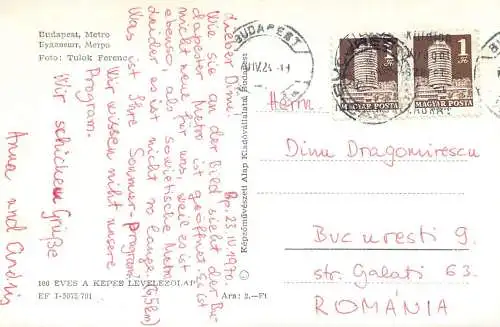 Budapest, Metro
Будапешт, Метро
Foto: Tulok Ferenc
Bp. 23. IV. 1970.
Lieber Dinu!
Wie sie an der Bild sieht der Bu-
dapester Metro ist geöffnet. Es ist
nicht neue für uns, weil es ist
ebenso, als sowietische Metro.
Leider es ist nicht so lange. (6,5 km)
Was ist Ihre Sommer-Program?
Wir wissen nicht unsere
Program.
Wir schicken Grüße
Anna und András
Képzőművészeti Alap Kiadóvállalata Budapest
100 ÉVES A KÉPES LEVELEZŐLAP
Ára: 2,-Ft
BUDAPEST
1 Ft
MAGYAR POSTA
MAGYAR POSTA
Herrn
Dinu Dragomirescu
Bucuresti 9.
str. Galati 63.
ROMÁNIA